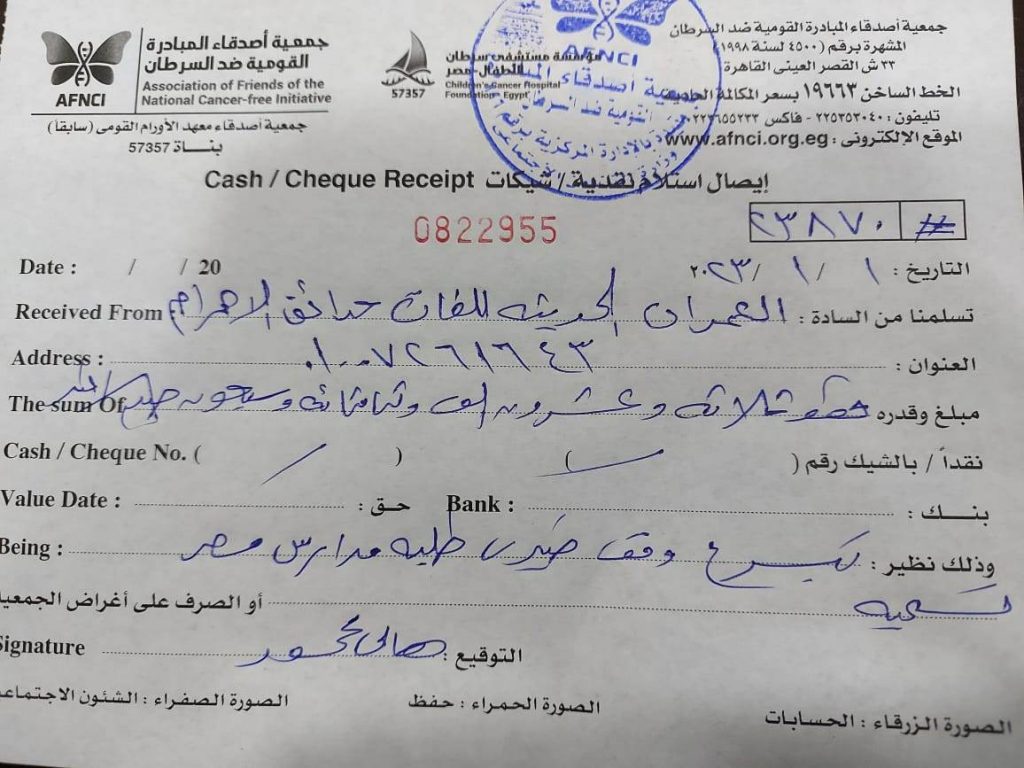 جمعية أصدقاء المبادرة القومية ضد السرطان
Association of Friends of the National Cancer-free Initiative
AFNCI
جمعية أصدقاء معهد الأورام القومى (سابقاً)
بنـاة 57357
مؤسسة مستشفى سرطان الأطفال - مصر
Children's Cancer Hospital Foundation - Egypt
57357
AFNCI
جمعية أصدقاء المبادرة القومية ضد السرطان
المشهرة برقم (٤٥٠٠ لسنة ١٩٩٨)
٣٣ ش القصر العينى القاهرة
الخط الساخن ١٩٦٦٣ بسعر المكالمة العادية
تليفون : ٢٢٥٣٥٣٠٤٠ - فاكس :
الموقع الإلكترونى : www.afnci.org.eg
إيصال استلام نقدية / شيكات Cash / Cheque Receipt
0822955
# ٢٣٨٧٠
التاريخ : ١ / ١ / ٢٠٢٣
Date : / / 20
تسلمنا من السادة : العمران الحديثه للغات حدائق الاهرام Received From
العنوان : ٠١٠٠٧٢٦١٦٤٣ Address :
مبلغ وقدره فقط ثلاثة وعشرون الف وثمانمائة وسبعون جنيه The sum Of
نقداً / بالشيك رقم ( ) Cash / Cheque No. ( )
بنـــك : Bank : حـق : Value Date :
وذلك نظير : تبرع وقف خيرى طلبه مدارس مصر Being :
أو الصرف على أغراض الجمعية
التوقيع : Signature
الصورة الزرقاء : الحسابات الصورة الحمراء : حفظ الصورة الصفراء : الشئون الاجتماعية